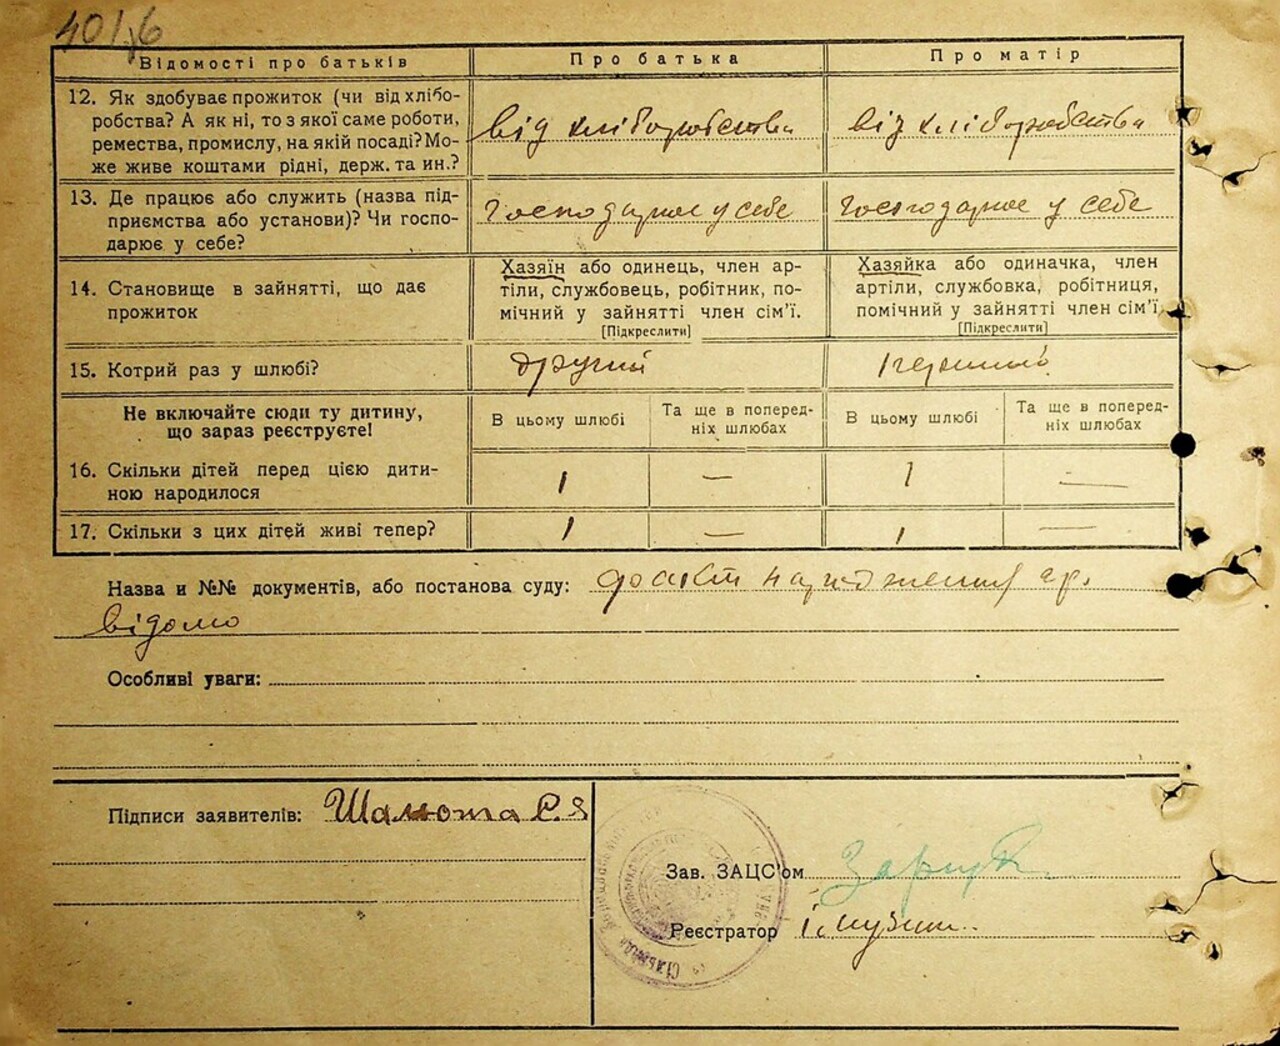 401
Відомості про батьків
Про батька
Про матір
12. Як здобуває прожиток (чи від хлібо-
робства? А як ні, то з якої саме роботи,
ремества, промислу, на якій посаді? Мо-
же живе коштами рідні, держ. та ин.?
від хліборобства
від хліборобства
13. Де працює або служить (назва під-
приємства або установи)? Чи госпо-
дарює у себе?
Господарює у себе
Господарює у себе
14. Становище в зайнятті, що дає
прожиток
Хазяїн або одинець, член ар-
тіли, службовець, робітник, по-
мічний у зайнятті член сім'ї.
[Підкреслити]
Хазяйка або одиначка, член
артіли, службовка, робітниця,
помічний у зайнятті член сім'ї
[Підкреслити]
15. Котрий раз у шлюбі?
другий
перший
Не включайте сюди ту дитину,
що зараз реєструєте!
В цьому шлюбі
Та ще в поперед-
ніх шлюбах
В цьому шлюбі
Та ще в поперед-
ніх шлюбах
16. Скільки дітей перед цією дити-
ною народилося
1 — 1 —
17. Скільки з цих дітей живі тепер?
1 — 1 —
Назва и №№ документів, або постанова суду: факт народження
відомо
Особливі уваги:
Підписи заявителів: Шамота
Зав. ЗАЦС'ом
Реєстратор